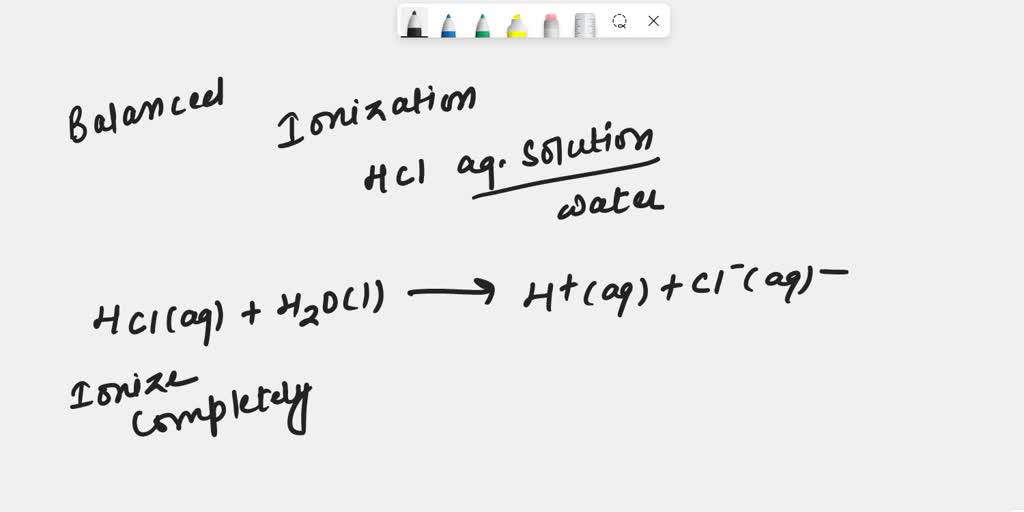 Balanced Ionization
HCl aq. solution
water
HCl(aq) + H₂O(l) ⟶ H⁺(aq) + Cl⁻(aq) –
Ionize
completely